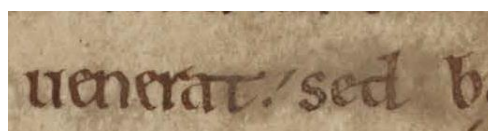 uenerat. sed b